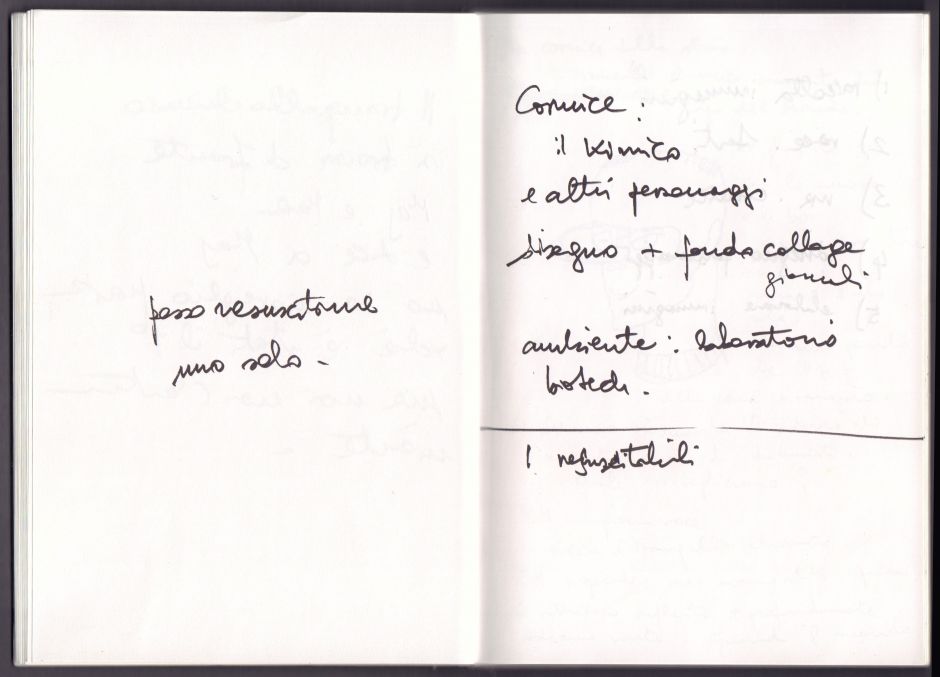 posso resuscitarne
uno solo -
Cornice :
il Kimico
e altri personaggi
disegno + fondo collage
giornali
ambiente : laboratorio
biotech .
I resuscitabili